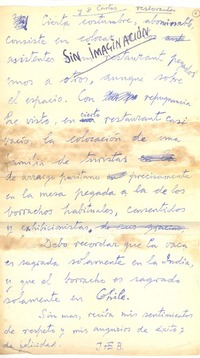 y 8 Cartas restaurantes
Cierta costumbre, abominable
consiste en colocar
SIN... IMAGINACIÓN
asistentes restaurant pegados
unos a otros, aunque sobre
el espacio. Con repugnancia
he visto, en cierto restaurant casi
vacío, la colocación de una
familia de
de arraigo puritano precisamente
en la mesa pegada a la de los
borrachos habituales, consentidos
y exhibicionistas,
Debo recordar que la vaca
es sagrada solamente en la India,
y que el borracho es sagrado
solamente en Chile.
Sin mas, recita mis sentimientos
de respeto y mis augurios de éxito y
de felicidad. J.E.B.